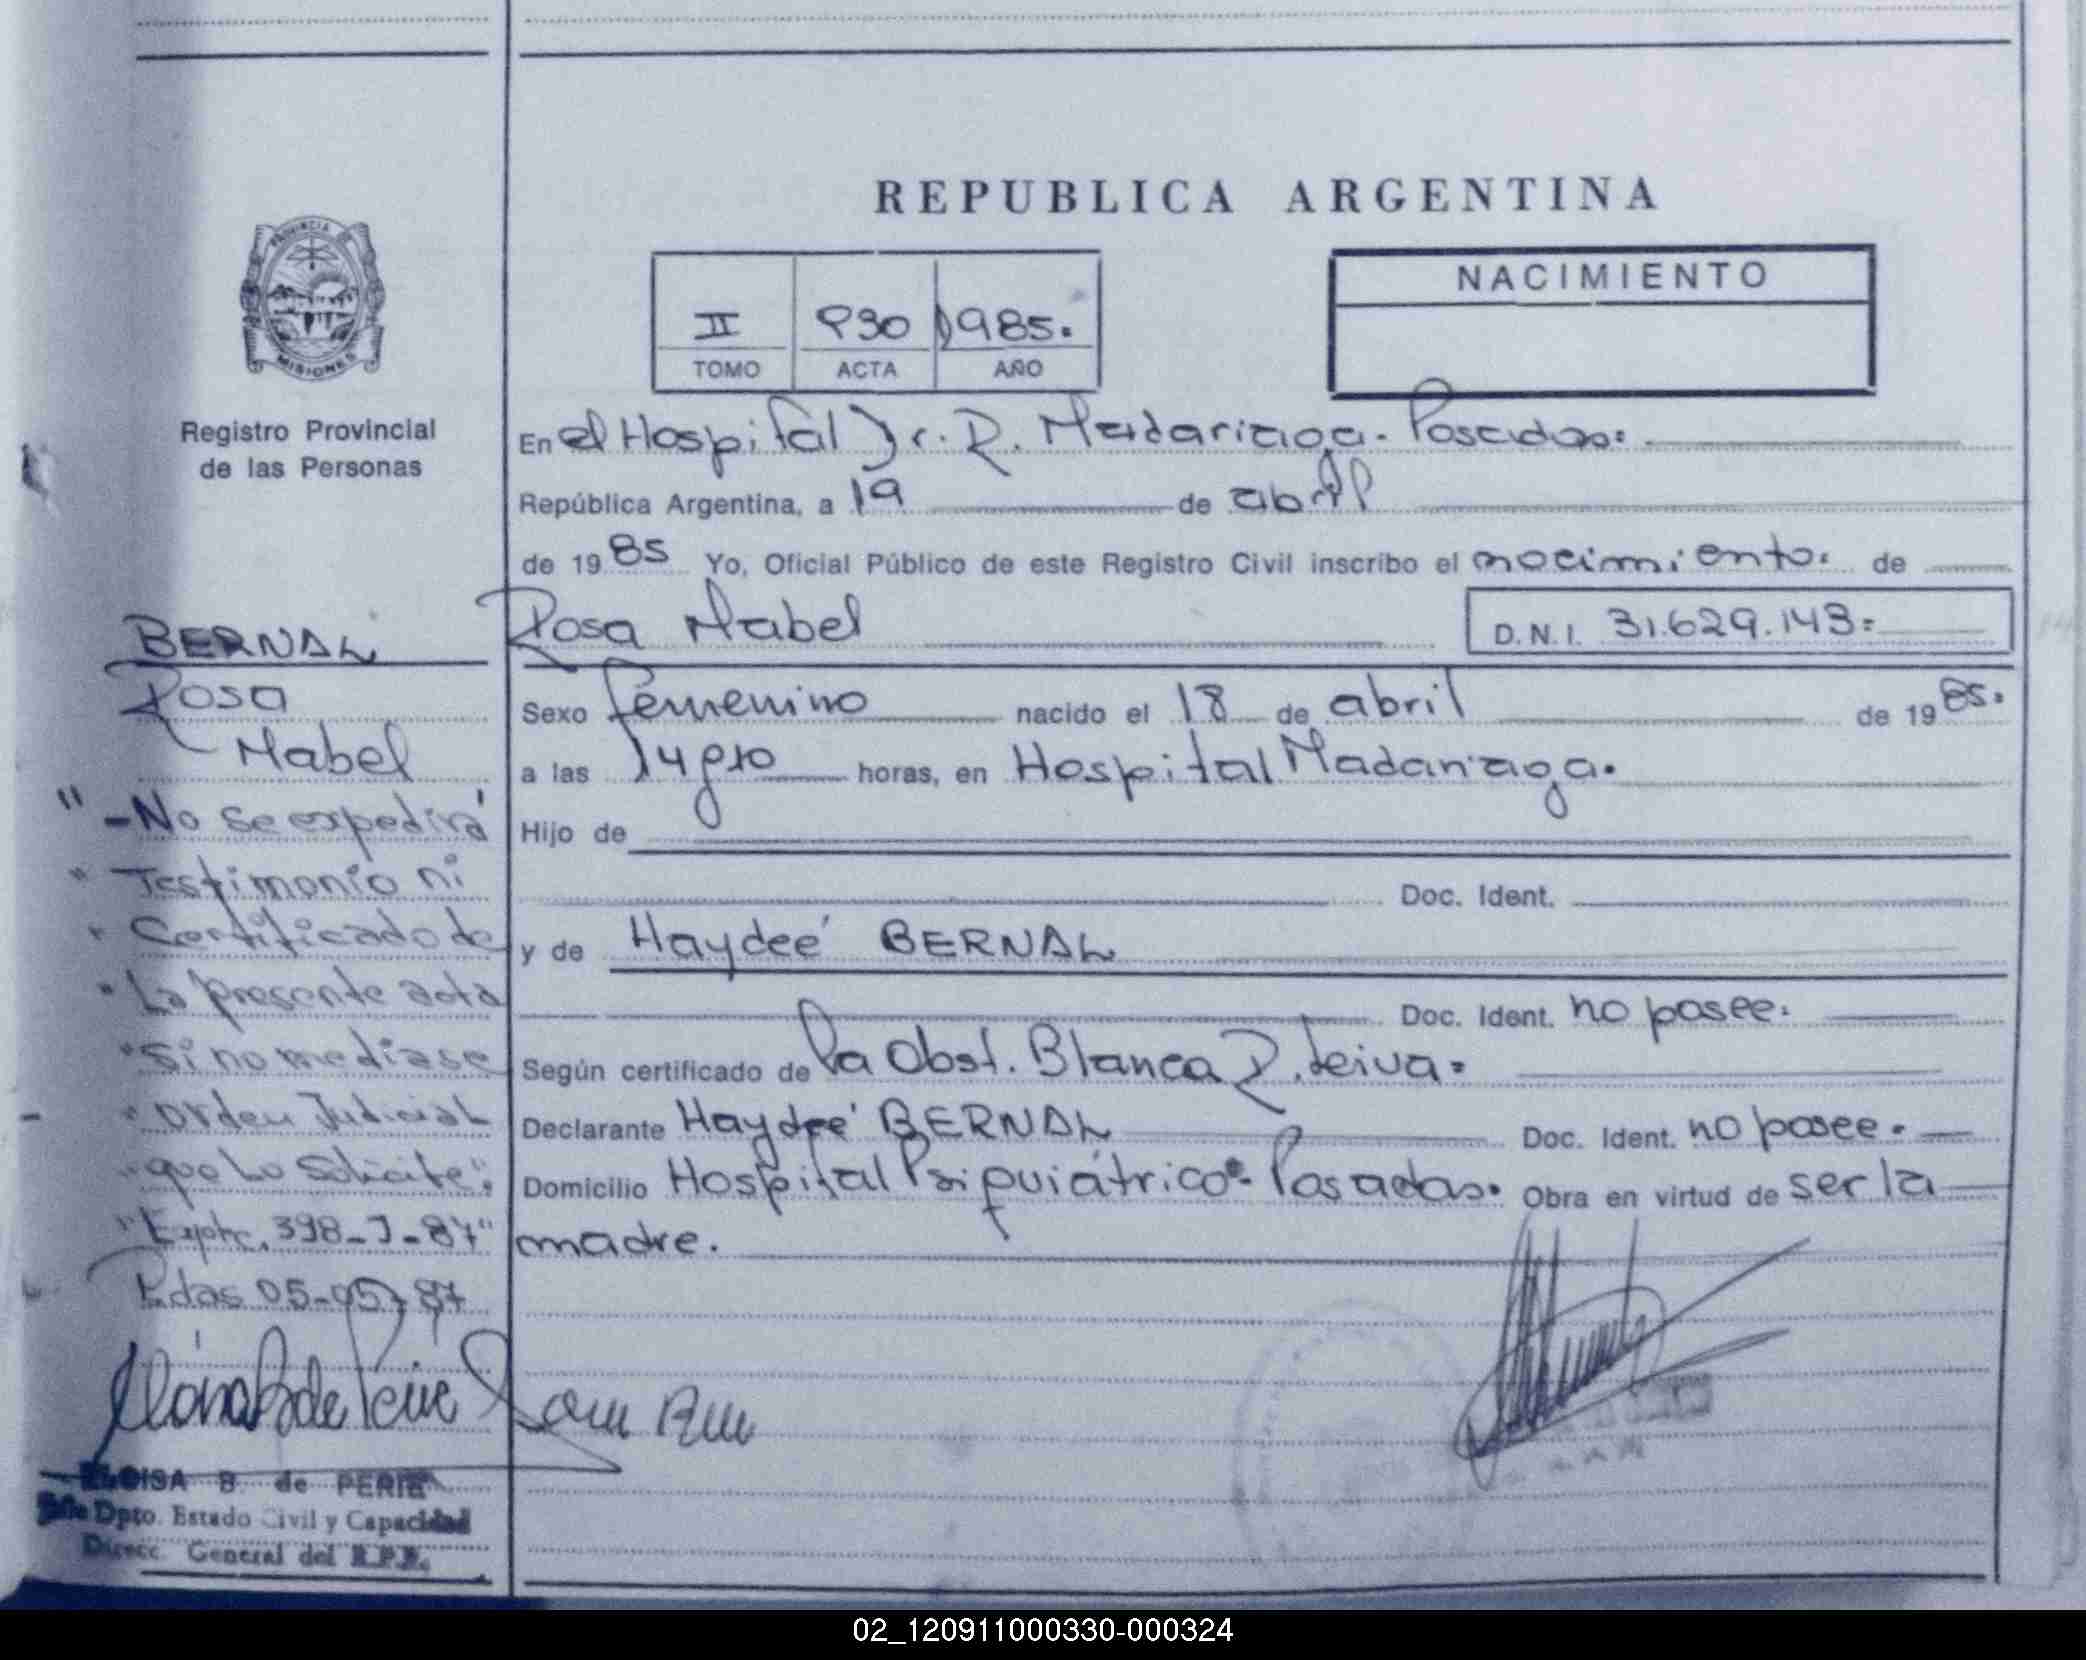 REPUBLICA ARGENTINA
PROVINCIA DE
MISIONES
Registro Provincial
de las Personas
II 930 1985.
TOMO ACTA AÑO
NACIMIENTO
En el Hospital Dr. R. Madariaga. Posadas.
República Argentina, a 19 de abril
de 1985 Yo, Oficial Público de este Registro Civil inscribo el nacimiento. de
Rosa Mabel D.N.I. 31.629.143=
Sexo femenino nacido el 18 de abril de 1985.
a las horas, en Hospital Madariaga.
Hijo de
Doc. Ident.
y de Haydeé BERNAL
Doc. Ident. no posee.
Según certificado de la Obst. Blanca R. Leiva=
Declarante Haydeé BERNAL Doc. Ident. no posee.
Domicilio Hospital Psiquiátrico- Posadas. Obra en virtud de ser la
madre.
BERNAL
Rosa
Mabel
"-No se expedirá
" Testimonio ni
" Certificado de
" La presente acta
" Si no mediase
" orden Judicial
" que lo solicite".
"Expte. 398-J-87"
Pdas 05-05-87
ELOISA B. de PERIE
Jefe Dpto. Estado Civil y Capacidad
Direcc. General del R.P.P.
02_120911000330-000324